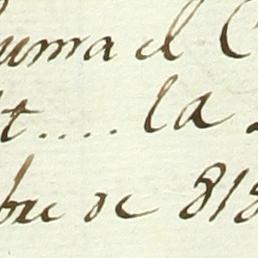 suma el C
t..... la
bre de 818